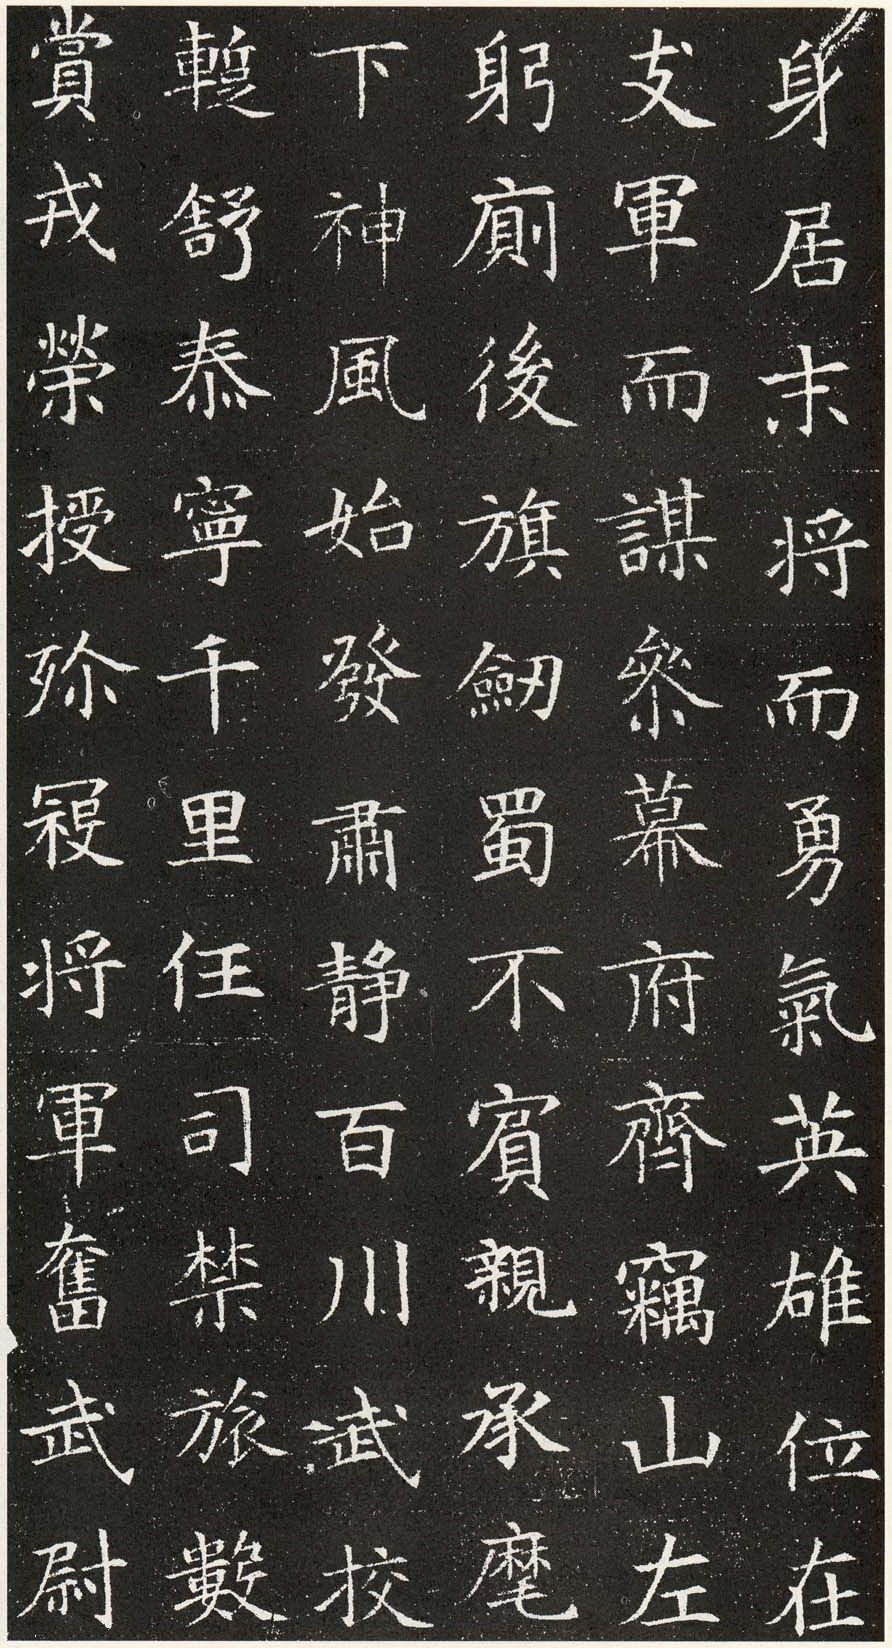 身居末将而勇氣英雄位在
支軍而謀叅幕府齊竊山左
躬廁後旗劒蜀不賓親承麾
下神風始發肅静百川武挍
蹔舒泰寧千里任司禁旅數
賞戎榮授殄冠将軍奮武尉